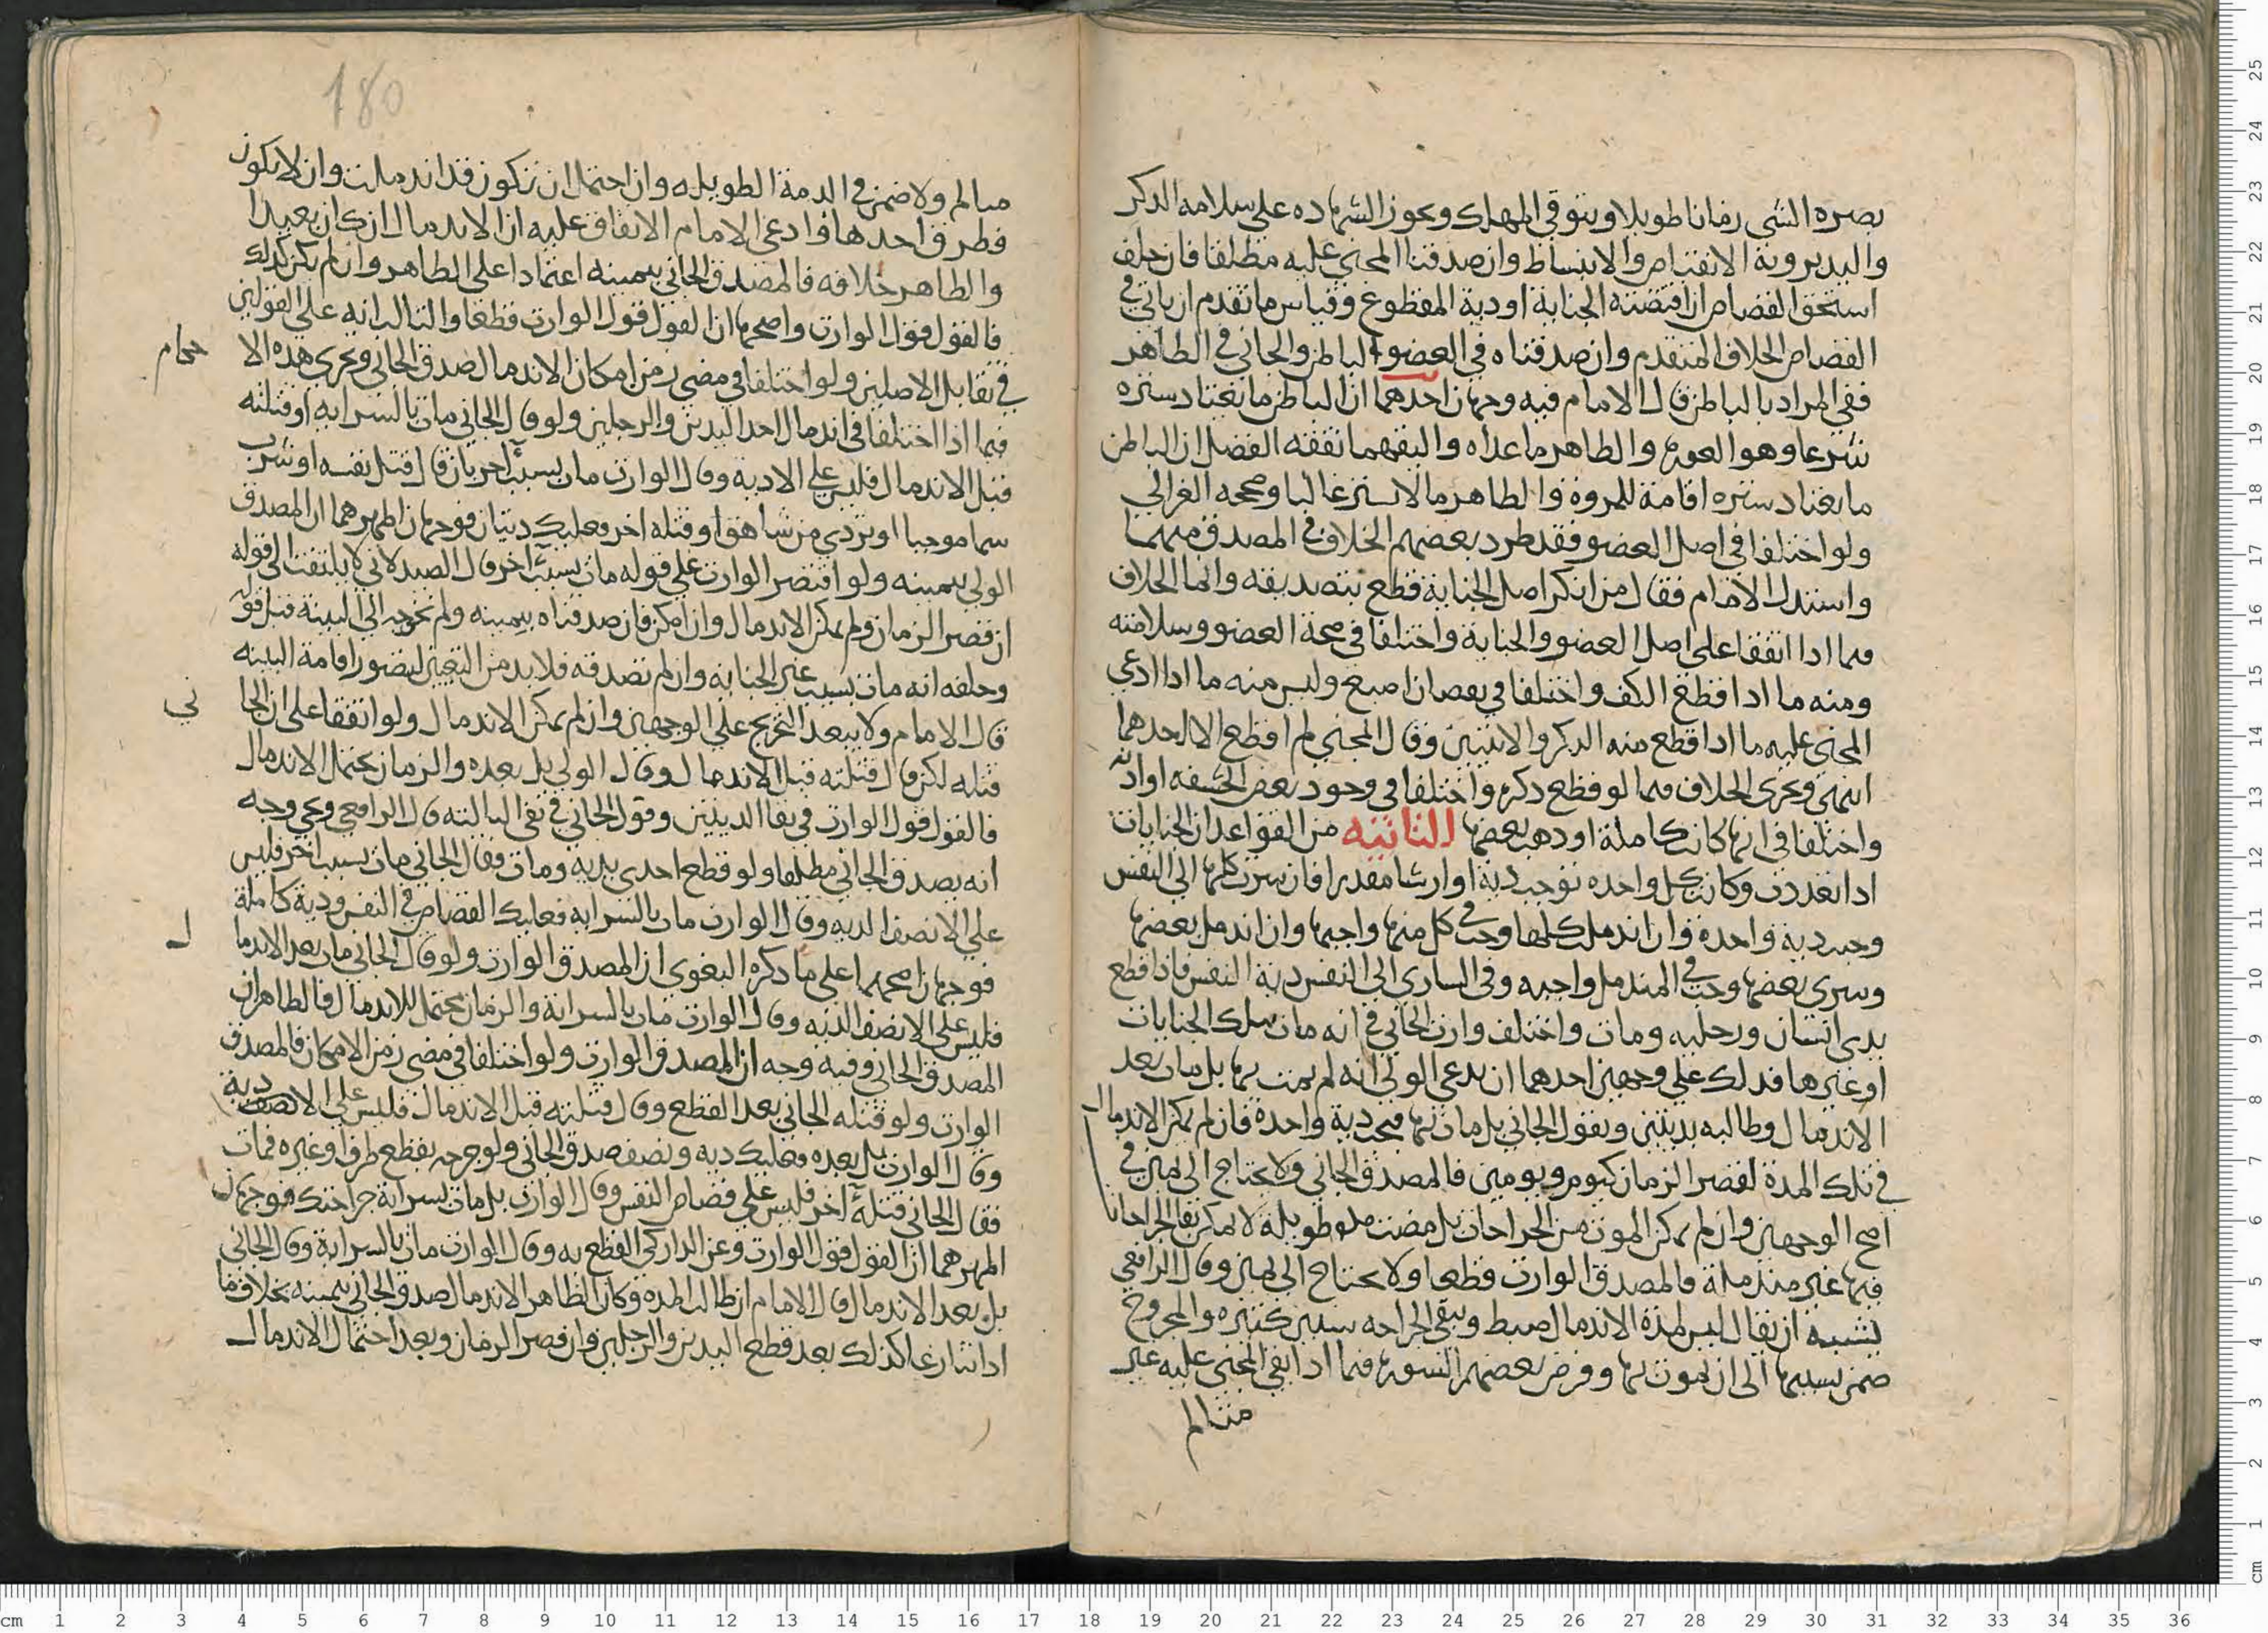 بصره الشى زمانا طويلا ويتوقي المهلك ويجوز الشهاده على سلامه الذكر
واليد بروية الانقباض والانبساط وان صدقنا المجني عليه مطلقا فان حلف
استحق القصاص ان اقتضته الجناية او دية المقطوع وقياس ما تقدم ان ياتي في
القصاص الخلاف المتقدم وان صدقناه في العضو الباطن والجاني في الظاهر
ففي المراد بالباطن قال الامام فيه وجهان احدهما ان الباطن ما يعتاد ستره
شرعا وهو العوره والظاهر ما عداه واليقهما نققه الفصل ان الباطن
ما يعتاد ستره اقامة للمروة والظاهر ما لا يستر غالبا وصححه الغزالي
ولو اختلفا في اصل العضو فقد طرد بعضهم الخلاف في المصدق منهما
واستدل الامام فقال من انكر اصل الجناية قطع بتصديقه وانما الخلاف
فيما اذا اتفقا على اصل العضو والجناية واختلفا في صحة العضو وسلامته
ومنه ما اذا قطع الكف واختلفا في نقصان اصبع وليس منه ما اذا ادعى
المجني عليه ما اذا قطع منه الذكر والانثيين وقال المجني لم اقطع الا احدهما
انتهى ويجرى الخلاف فيما لو قطع ذكره واختلفا في وجود بعض الحشفه او اذنه
واختلفا في انها كانت كاملة او ذهب بعضها الثانيه من القواعد ان الجنايات
اذا تعددت وكانت كل واحده توجب دية او ارشا مقدرا فان سرت كلها الى النفس
وجبت دية واحدة وان اندملت كلها وجب في كل منها واجبها وان اندمل بعضها
وسرى بعضها وجب في المندمل واجبه وفي السارى الى النفس دية النفس فاذا قطع
يدى انسان ورجليه ومات واختلف وارث الجاني في انه مات بتلك الجنايات
او غيرها فذلك على وجهين احدهما ان يدعى الولي انه لم يمت بها بل مات بعد
الاندمال وطالبه بديتين ويقول الجاني بل مات بها فتجب دية واحدة فان لم يمكن الاندمال
في تلك المدة لقصر الزمان كيوم ويومين فالمصدق الجاني ولا يحتاج الى يمين في
اصح الوجهين وان لم يمكن الموت من الجراحات بل مضت مده طويلة لا يمكن بقا الجراحات
فيها غير مندملة فالمصدق الوارث قطعا ولا يحتاج الى يمين وقال الرافعي
يشبه ان يقال ليس لمدة الاندمال ضبط وتبقى الجراحه سنين كثيره والمجروح
ضمن بسببها الى ان يموت بها وفرض بعضهم الصوره فيما اذا بقي المجني عليه غير
متالم
180
متالم ولا ضمن في المدة الطويله وان احتمل ان تكون قد اندملت وان لا يكون
فطرق احدها وادعى الامام الاتفاق عليه ان الاندمال ان كان بعيدا
والظاهر خلافه فالمصدق الجاني بيمينه اعتمادا على الظاهر وان لم يكن كذلك
فالقول قول الوارث واصحها ان القول قول الوارث قطعا والثالث انه على القولين
في تقابل الاصلين ولو اختلفا في مضى زمن امكان الاندمال صدق الجاني وتجرى هذه الا
حكام
فيما اذا اختلفا في اندمال احد اليدين والرجلين ولو قال الجاني مات بالسراية او قتلته
قبل الاندمال فليس على الا دية وقال الوارث مات بسبب آخر بان قال قتل نفسه او شرب
سما موجبا او تردي من شاهق او قتله اخر فعليك ديتان فوجهان اظهرهما ان المصدق
الولي بيمينه ولو اقتصر الوارث على قوله مات بسبب آخر قال الصيدلاني لا يلتفت الى قوله
ان قصر الزمان ولم يمكن الاندمال وان امكن فان صدقناه بيمينه ولم نحوجه الى البينة قبل قوله
وحلفه انه مات بسبب غير الجنايه وان لم نصدقه فلا بد من التعيين ليتصور اقامة البينه
قال الامام ولا يبعد التخريج على الوجهين وان لم يمكن الاندمال ولو اتفقا على ان الجا
ني
قتله لكن قال قتلته قبل الاندمال وقال الولي بل بعده والزمان يحتمل الاندمال
فالقول قول الوارث في بقا الديتين وقول الجاني في نفي الثالثه قال الرافعي وحكي وجه
انه يصدق الجاني مطلقا ولو قطع احدى يديه ومات فقال الجاني مات بسبب اخر فليس
على الا نصف الديه وقال الوارث مات بالسرايه فعليك القصاص في النفس ودية كاملة
فوجهان اصحهما على ما ذكره البغوى ان المصدق الوارث ولو قال الجاني مات بعد الاندما
ل
فليس على الا نصف الديه وقال الوارث مات بالسراية والزمان محتمل للاندمال فالظاهر ان
المصدق الجاني وفيه وجه ان المصدق الوارث ولو اختلفا في مضى زمن الامكان فالمصدق
الوارث ولو قتله الجاني بعد القطع وقال قتلته قبل الاندمال فليس على الا نصف دية
وقال الوارث بل بعده فعليك دية ونصف صدق الجاني ولو جرحه بقطع طرف او غيره فمات
فقال الجاني قتله آخر فليس على قصاص النفس وقال الوارث بل مات بسراية جراحتك فوجهان
اظهرهما ان القول قول الوارث وعن الداركي القطع به وقال الوارث مات بالسراية وقال الجاني
بل بعد الاندمال قال الامام ان طالت المده وكان الظاهر الاندمال صدق الجاني بيمينه بخلاف ما
اذا تنازعا كذلك بعد قطع اليدين والرجلين وان قصر الزمان وبعد احتمال الاندمال